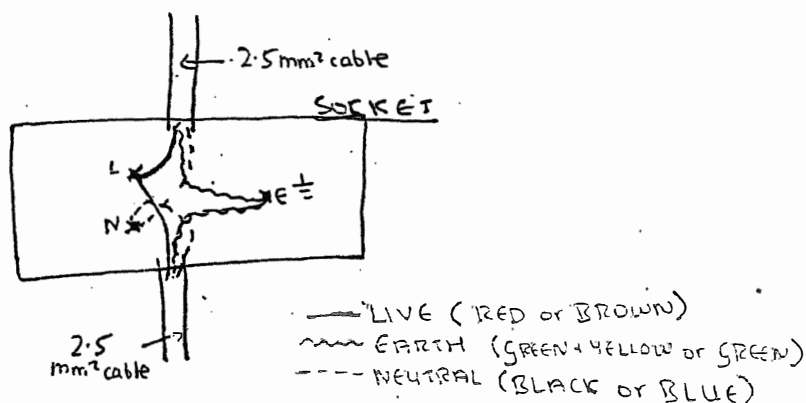 2.5mm² cable
SOCKET
L
E
N
2.5
mm² cable
LIVE (RED or BROWN)
EARTH (GREEN+YELLOW or GREEN)
NEUTRAL (BLACK or BLUE)